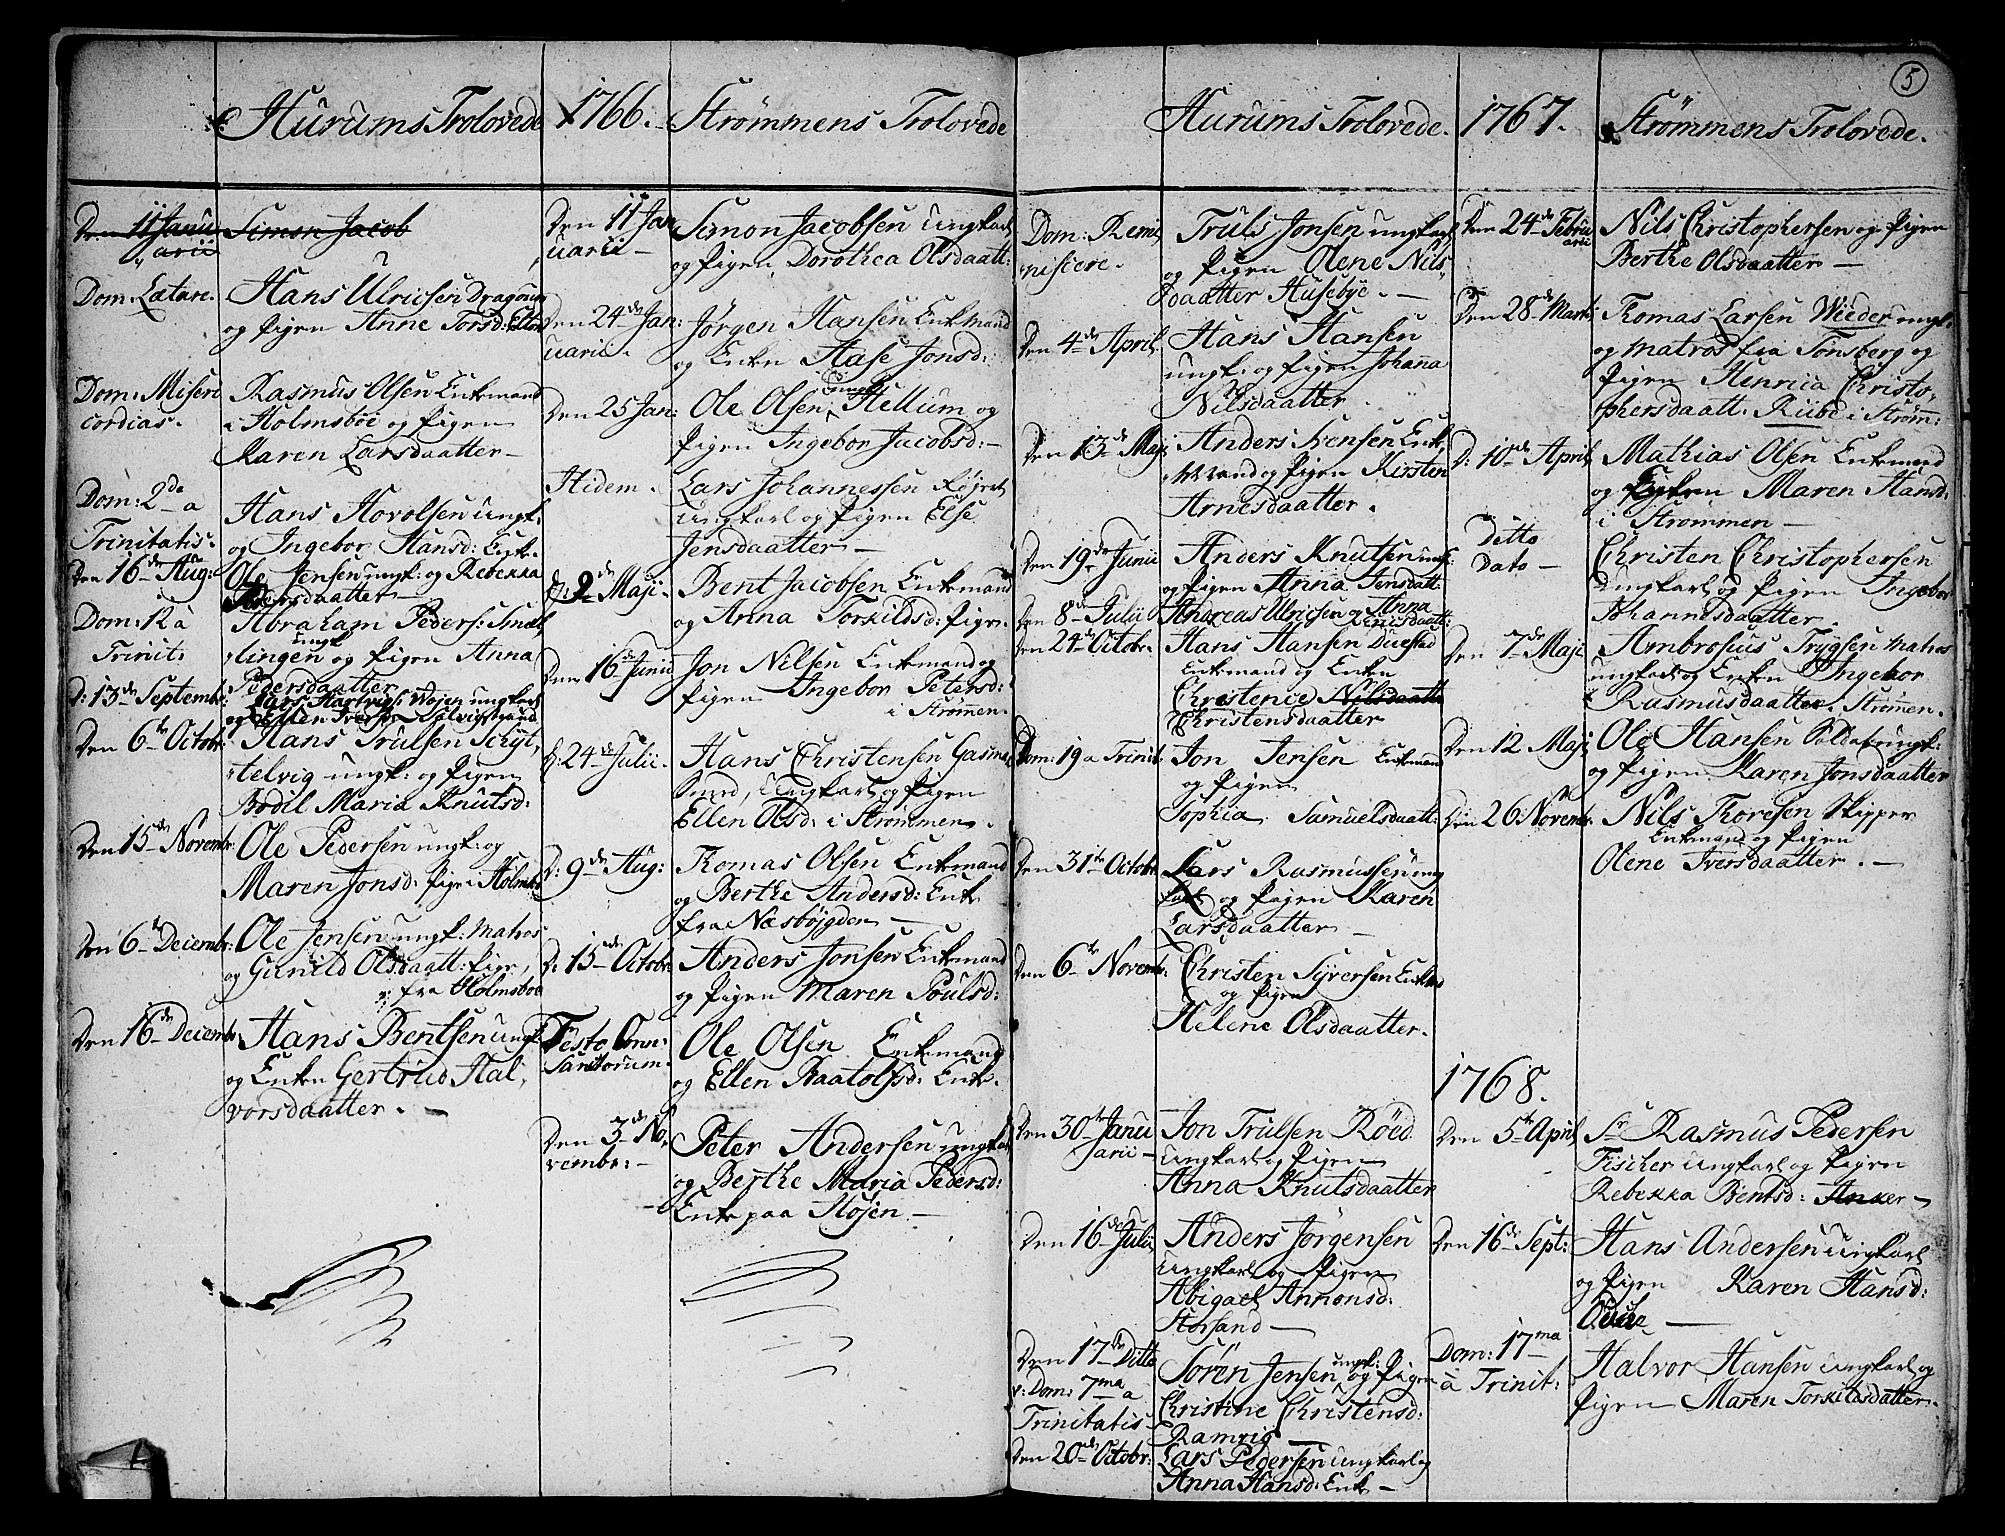 Hurums Trolovede
1766.
Strømmens Trolovede
Den 11 Janu
arii
Simon Jacob
Dom: Lætare.
Hans Ulricsen Dragoun
og Pigen Anne Torsd: Elton
Dom: Miseri
cordias.
Rasmus Olsen Enkemand
i Holmsboe og Pigen
Karen Larsdaatter
Dom: 2da a
Trinitatis.
Hans Hovolsen ungk:
og Ingebor Hansd: Enk.
Den 16de Aug:
Ole Jensen ungk: og Rebekka
Pedersdaatter
Dom: 12 à
Trinit:
Abraham Peders: Smæt
ungk
lingen og Pigen Anna
Pedersdaatter
D: 13de Septembr:
Lars Hartvigs:
og Ellen
Den 6te Octobr:
Hans Trulsen
telvig ungk: og Pigen
Bodil Maria Knutsd:
Den 15de Novembr:
Ole Pedersen ungk: og
Maren Jonsd: Pige i Holmsb:
Den 6te Decembr:
Ole Jensen ungk: Matros
og Gunild Olsdaatt: Pige
fra Holmsboe
Den 16de Decembr:
Hans Bentsen ungk
og Enken Gertrud Hal,
vorsdaatter. —
Den 11 Jan
uarii —
Simon Jacobsen Ungkarl
og Pigen Dorothea Olsdaatt:
Den 24de Jan:
uarii.
Jørgen Hansen Enkemand
og Enken Aase Jonsd:
Den 25 Jan:
ungk
Ole Olsen Hellum og
Pigen Ingebor Jacobsd: —
Hidem.
Lars Johannessen
Ungkarl og Pigen Else
Jensdaatter —
D: 2de Maji.
Bent Jacobsen Enkemand
og Anna Torkildsd: Pige.
Den 16de Junii
Jon Nilsen Enkemand og
Pigen Ingebor Petersd:
i Strømmen.
D: 24de Julii.
Hans Christensen
Smed, Ungkarl og Pigen
Ellen Olsd: i Strømmen.
D: 9de Aug:
Thomas Olsen Enkemand
og Berthe Andersd: Enke
fra Næsbøjgden —
D: 15de Octobr:
Anders Jonsen Enkemand
og Pigen Maren Poulsd:
Festo Omn:
Sanctorum.
Ole Olsen Enkemand
og Ellen Baatolfsd: Enke.
Den 3de No,
vembr: —
Peter Andersen ungkarl
og Berthe Maria Pedersd:
Enke paa Støsen. —
5
Hurums Trolovede.
1767.
Strømmens Trolovede.
Dom: Remi
niscere.
Truls Jonsen ungkarl
og Pigen Olene Nils,
Daatter Husebye. —
Den 4de April
Hans Hansen
ungk: og Pigen Johanna
Nilsdaatter.
Den 13de Maji
Anders Svensen Enke,
Mand og Pigen Kirsten
Arnesdaatter.
Den 19de Junii
Anders Knutsen ungk:
og Pigen Anna Jensdaatt:
Den 8de Julii
Andreas Ulricsen og Anna
Den 24de Octobr.
Hans Hansen Duestad
Enkemand og Enken
Christence Nilsdaatte
Christensdaatter
Dom: 19 a Trinit.
Jon Jensen Enkemand
og Pigen
Sophia Samuelsdaatt:
Den 31te Octobr
Lars Rasmussen ung
karl og Pigen Karen
Larsdaatter —
Den 6te Novembr.
Christen Syversen Enkem
og Pigen
Helene Olsdaatter.
Den 24de Febru
arii
Nils Christophersen og Pigen
Berthe Olsdaatter —
Den 28de Marti
Thomas Larsen Wieder ungk:
og Matros fra Tønsberg og
Pigen Henricia Christo,
phersdaatt: Riibe i Strøm:
D: 10de April
Mathias Olsen Enkemand
og Pigen Maren Hansd:
i Strømmen —
Ditto
Dato —
Christen Christophersen
Ungkarl og Pigen Ingebor
Johannesdaatter.
Den 7de Maji
Ambrosius Trygsen Matros
ungkarl og Enken Ingebor
Rasmusdaatter, Strømmen.
Den 12 Maji
Ole Hansen Soldat ungk:
og Pigen Karen Jonsdaatter
Den 26 Novembr:
Nils Thoresen Skipper
Enkemand og Pigen
Olene Iversdaatter. —
1768.
Den 30te Janu
arii —
Jon Trulsen Røed
Ungkarl og Pigen
Anna Knutsdaatter
Den 16de Julii
Anders Jørgensen
Ungkarl og Pigen
Abigael Annonsd:
Storsand —
Den 17de Ditto
Dom: 7ma a
Trinitatis
ungk:
Søren Jensen og Pigen
Christine Christensd:
Ramvig —
Den 20de Octobr:
Lars Pedersen Ungkarl og
Anna Hansd: Enke —
Den 5te April
Sr Rasmus Pedersen
Fischer Ungkarl og Pigen
Rebekka Bentsd: Anker —
Den 16de Sept:
Hans Andersen Ungkarl
og Pigen Karen Hansd:
Dom: 17ma
à Trinit:
Halvor Hansen Ungkarl og
Pigen Maren Torkildsdatter.